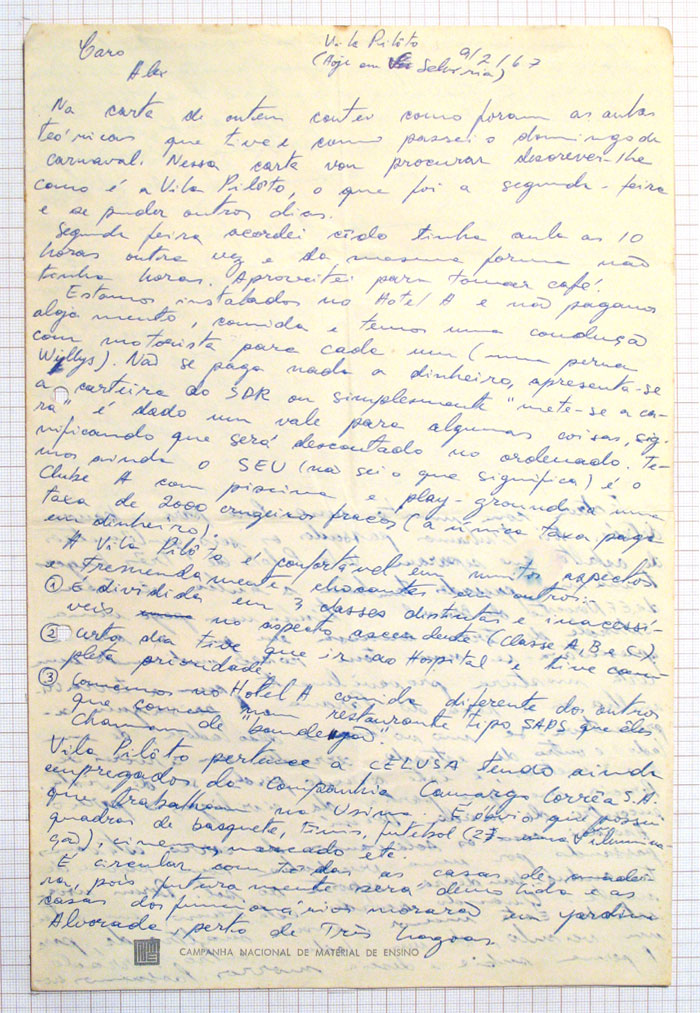 Caro
Alex
Vila Pilôto 9/2/67
(Hoje em Selvíria)
Na carta de ontem contei como foram as aulas
teóricas que tive e como passei o domingo de
carnaval. Nessa carta vou procurar descrever-lhe
como é a Vila Pilôto, o que foi a segunda-feira
e se puder outros dias.
Segunda feira acordei cêdo tinha aula as 10
horas outra vez e da mesma forma não
tinha horas. Aproveitei para tomar café.
Estamos instalados no Hotel A e não pagamos
alojamento, comida e temos uma condução
com motorista para cada um (uma perua
Willys). Não se paga nada a dinheiro, apresenta-se
a carteira do SDR ou simplesmente "mete-se a ca-
ra" é dado um vale para algumas coisas, sig-
nificando que será descontado no ordenado. Te-
mos ainda o SEU (não sei o que significa) é o
Clube A com piscina e play-ground a uma
taxa de 2000 cruzeiros fracos (a única taxa paga
em dinheiro).
A Vila Pilôto é confortável em muitos aspectos
e tremendamente chocantes em outros:
① É dividida em 3 classes distintas e inacessí-
veis no aspecto ascendente (Classe A, B e C).
② Certo dia tive que ir ao Hospital e tive com-
pleta prioridade.
③ Comemos no Hotel A comida diferente dos outros
que comem num restaurante tipo SAPS que êles
chamam de "bandejão".
Vila Pilôto pertence à CELUSA tendo ainda
empregados da Companhia Camargo Corrêa S.A.
que trabalham na Usina. É óbvio que possui
quadras de basquete, tenis, futebol (2 uma ilumina-
ção), cinema, mercado etc.
É circular com tôdas as casas de madei-
ra, pois futuramente será demolida e as
casas dos funcionários morarão em Jardim
Alvorada, perto de Três Lagoas.
CAMPANHA NACIONAL DE MATERIAL DE ENSINO